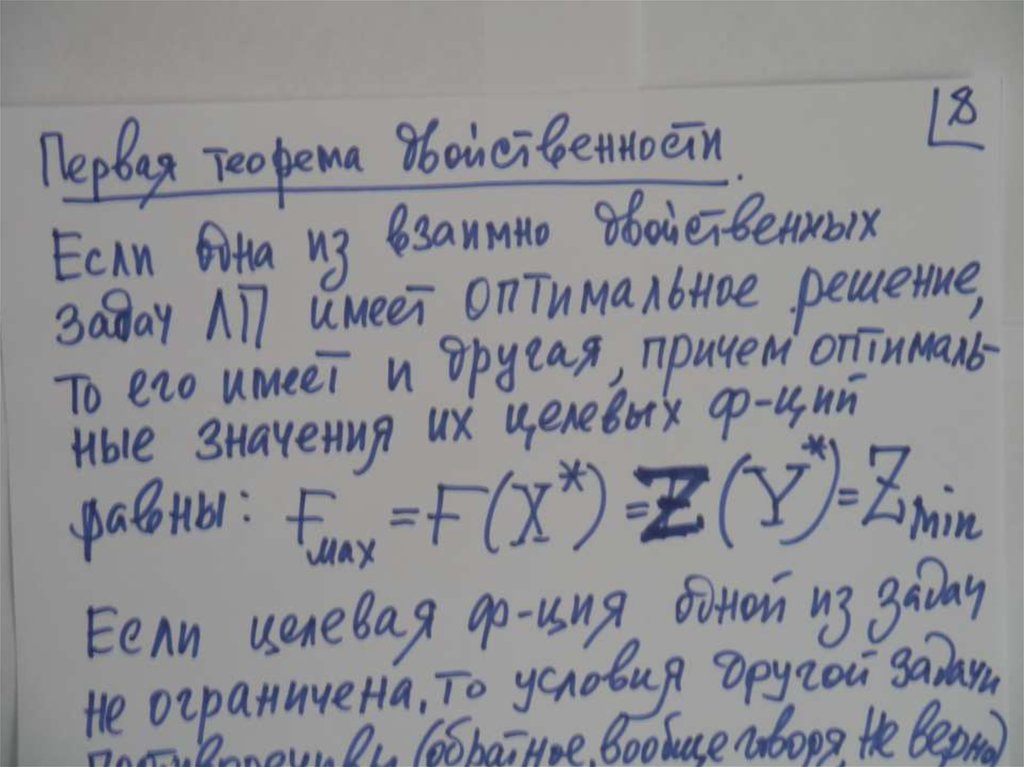 8
Первая теорема двойственности.
Если одна из взаимно двойственных
задач ЛП имеет оптимальное решение,
то его имеет и другая, причем оптималь-
ные значения их целевых ф-ций
равны: Fmax = F(X*) = Z(Y*) = Zmin
Если целевая ф-ция одной из задач
не ограничена, то условия другой задачи
противоречивы (обратное, вообще говоря, не верно)